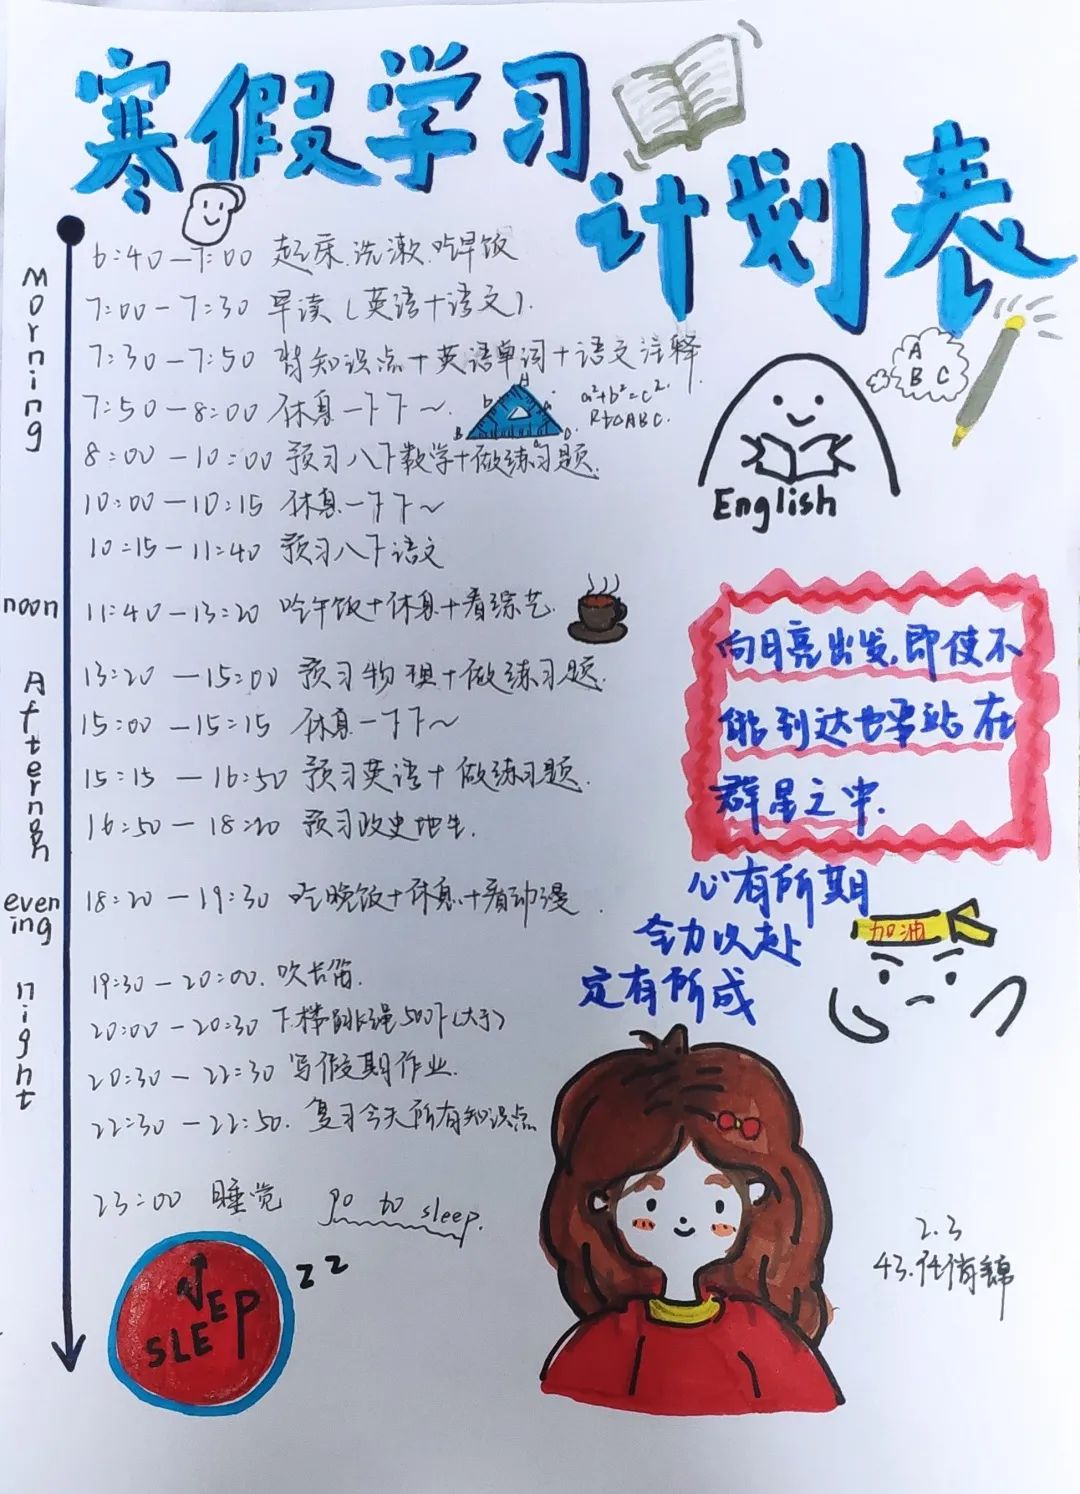 寒假学习
计划表
Morning
6:40—7:00 起床.洗漱.吃早饭
7:00—7:30 早读(英语+语文).
7:30—7:50 背知识点+英语单词+语文注释.
7:50—8:00 休息一下下~.
a²+b²=c².
Rt△ABC.
A
B C
English
8:00—10:00 预习八下数学+做练习题.
10:00—10:15 休息一下下~
10:15—11:40 预习八下语文
noon
11:40—13:20 吃午饭+休息+看综艺.
Afternoon
13:20—15:00 预习物理+做练习题.
15:00—15:15 休息一下下~
15:15—16:50 预习英语+做练习题.
16:50—18:20 预习政史地生.
向月亮出发,即使不
能到达也能站在
群星之中.
evening
18:20—19:30 吃晚饭+休息+看动漫.
心有所期
全力以赴
定有所成
加油
night
19:30—20:00. 吹长笛.
20:00—20:30 下楼跳绳500下(大于)
20:30—22:30 写假期作业.
22:30—22:50. 复习今天所有知识点
23:00 睡觉 go to sleep.
SLEEP
z z
2.3
43.任